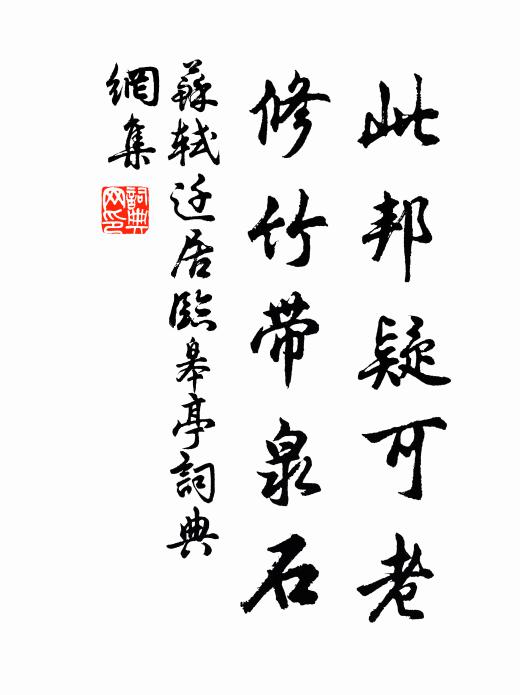 此邦疑可老
修竹帶泉石
蘇軾迁居臨皋亭詞典
網集
詞典
网印